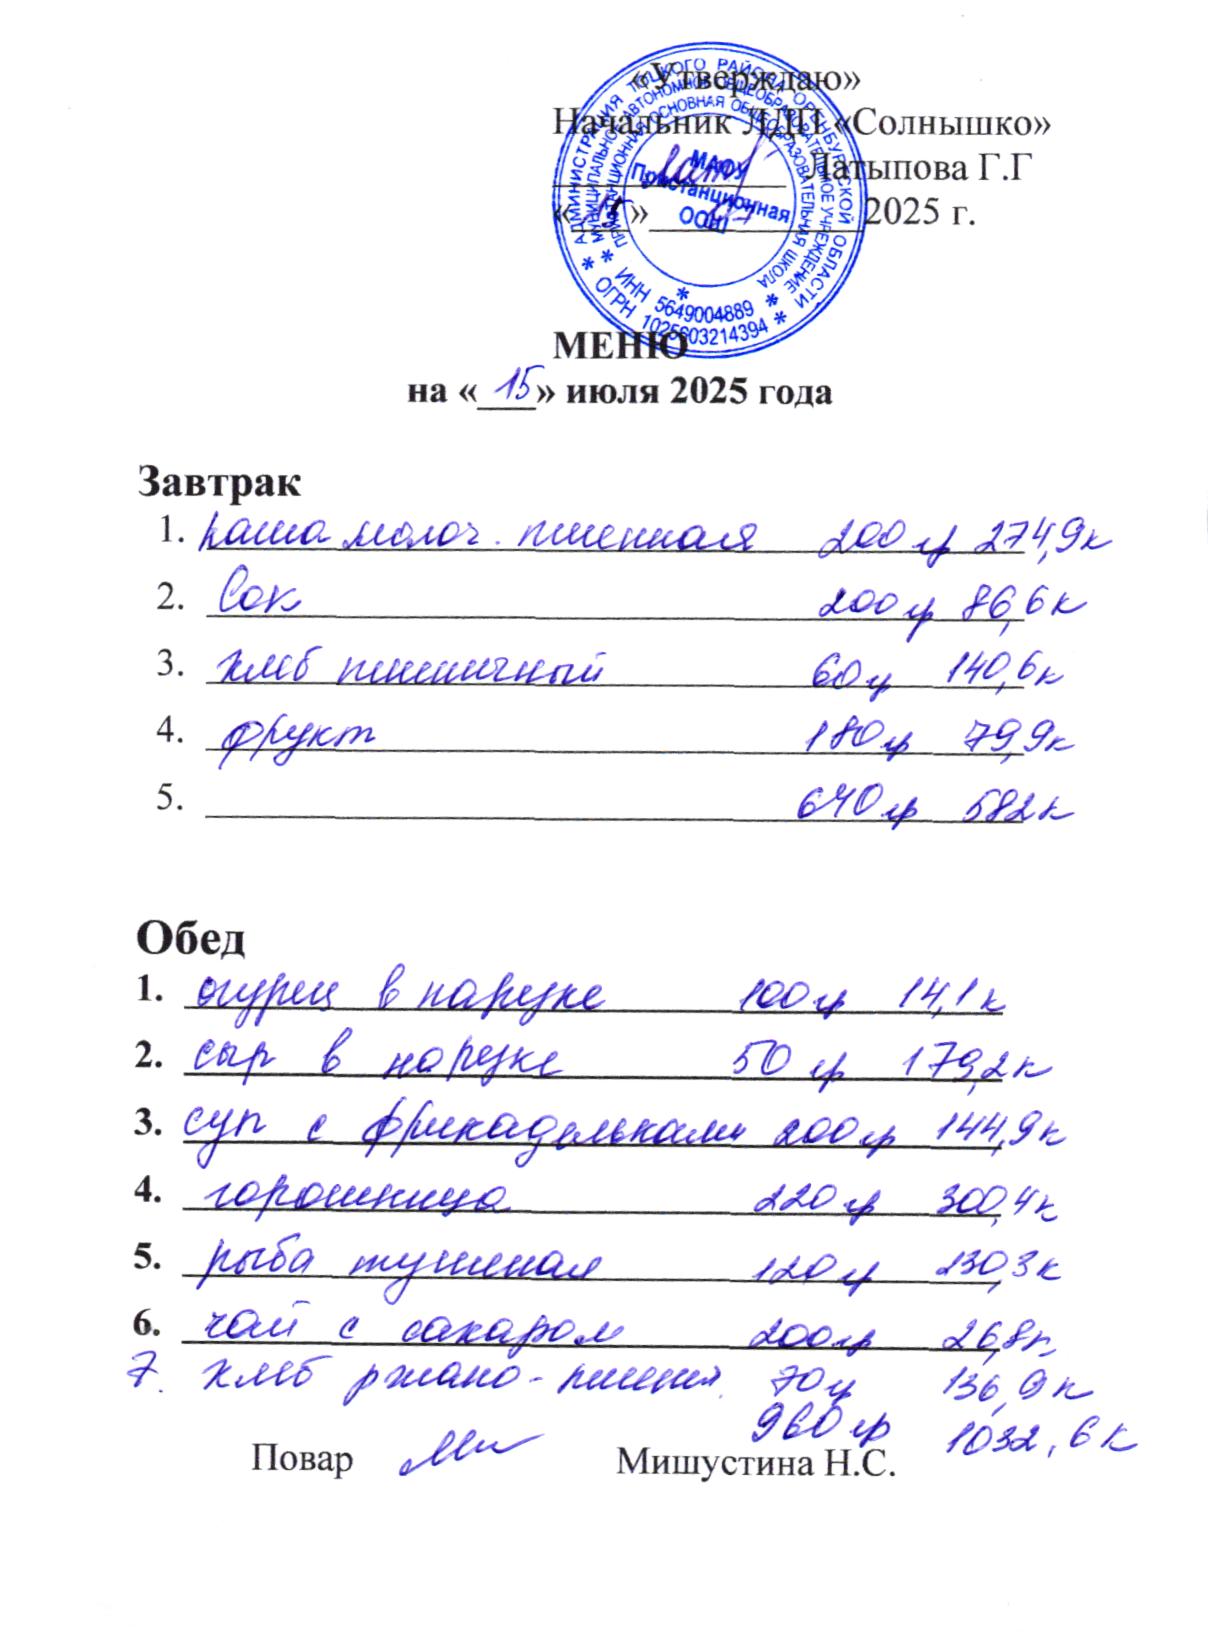 «Утверждаю»
Начальник ЛДП «Солнышко»
Латыпова Г.Г
«15» 07 2025 г.
АДМИНИСТРАЦИЯ ТОЦКОГО РАЙОНА ОРЕНБУРГСКОЙ ОБЛАСТИ
МУНИЦИПАЛЬНОЕ АВТОНОМНОЕ ОБЩЕОБРАЗОВАТЕЛЬНОЕ УЧРЕЖДЕНИЕ
ПРИСТАНЦИОННАЯ ОСНОВНАЯ ОБЩЕОБРАЗОВАТЕЛЬНАЯ ШКОЛА
МАОУ
Пристанционная
ООШ
* ИНН 5649004889 *
* ОГРН 1025603214394 *
МЕНЮ
на «15» июля 2025 года
Завтрак
1. каша молоч. пшенная 200 гр 274,9к
2. Сок 200 гр 86,6к
3. хлеб пшеничный 60 г 140,6к
4. фрукт 180 гр 79,9к
5. 640 гр 582к
Обед
1. огурец в нарезке 100 гр 14,1к
2. сыр в нарезке 50 гр 179,2к
3. суп с фрикадельками 200 гр 144,9к
4. горошница 220 гр 300,4к
5. рыба тушеная 120 гр 230,3к
6. чай с сахаром 200 гр 26,8к
7. хлеб ржано-пшенич. 70 г 136,9к
960 гр 1032,6к
Повар Мишустина Н.С.